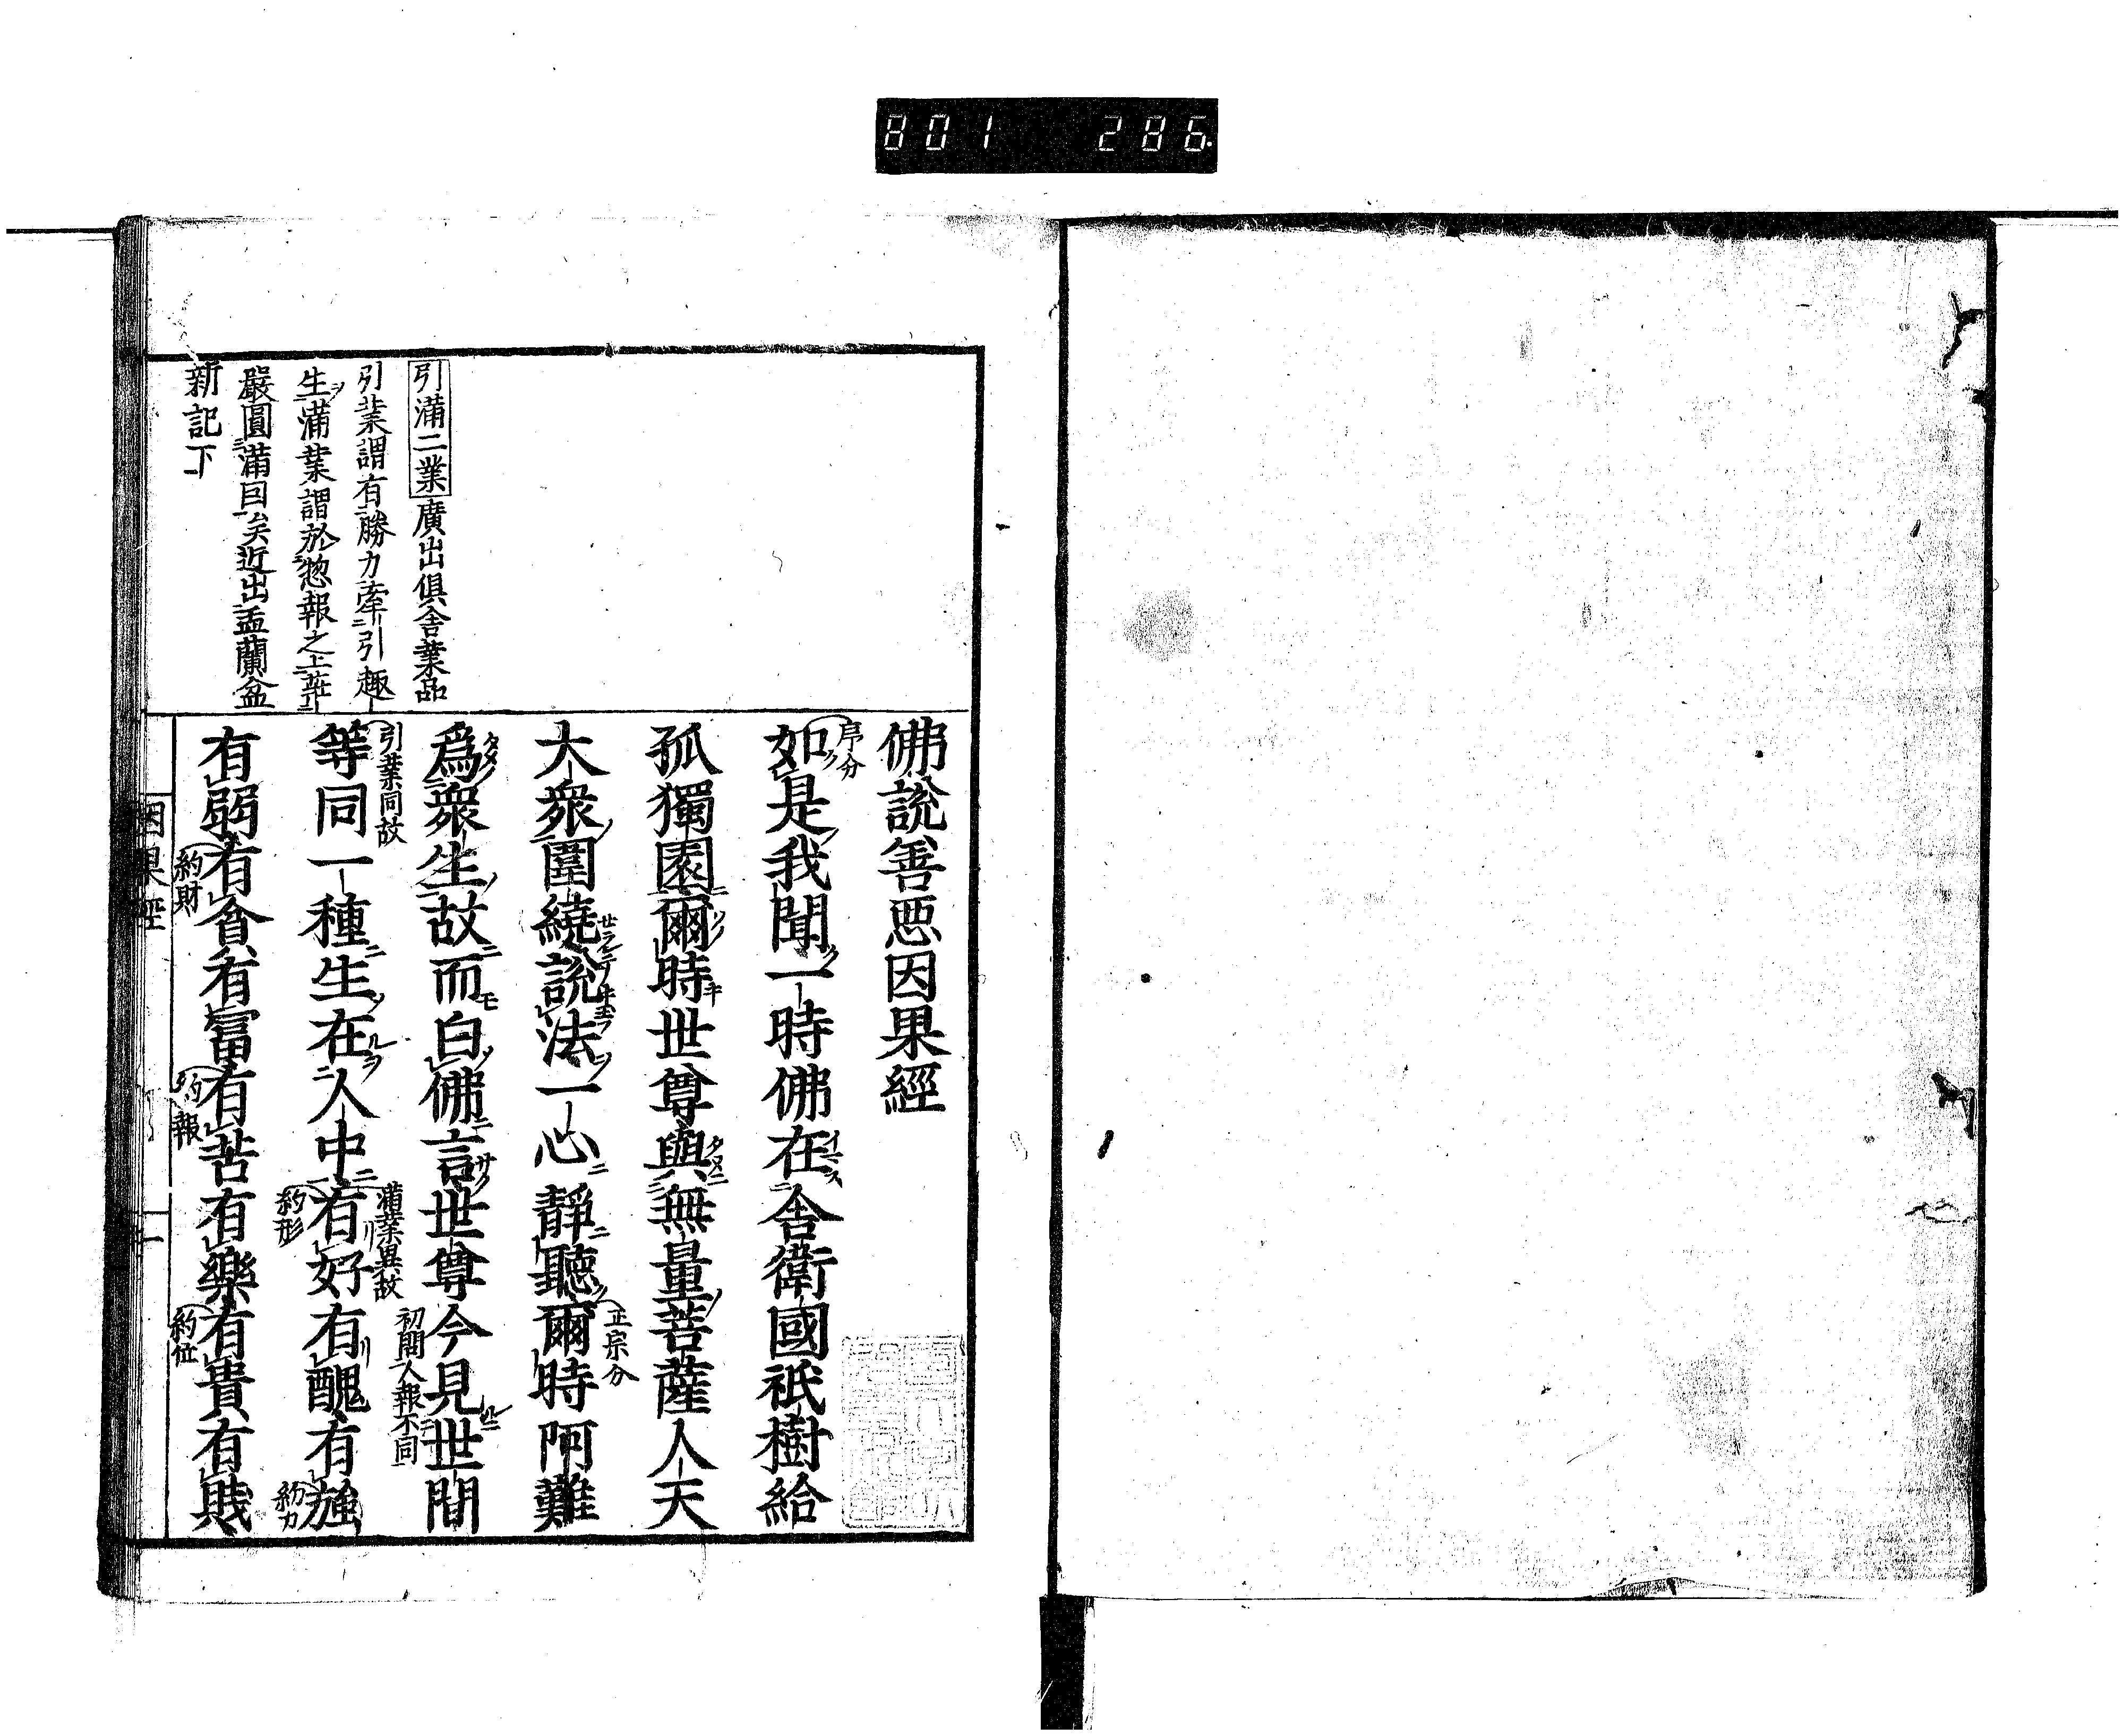 801 286
引滿二業廣出俱舍業品
引業謂有勝力牽引趣
生滿業謂於惣報之上莊
嚴圓滿因矣近出盂蘭盆
新記下
佛說善惡因果經
序分
如是我聞一時佛在舍衛國祇樹給
孤獨園爾時世尊與無量菩薩人天
大衆圍繞說法一心靜聽爾時阿難
正宗分
爲衆生故而白佛言世尊今見世間
初問人報不同
引業同故
滿業異故
等同一種生在人中有好有醜有强
約形
約力
有弱有貪有富有苦有樂有貴有賤
約財
約報
約位
因果經
一